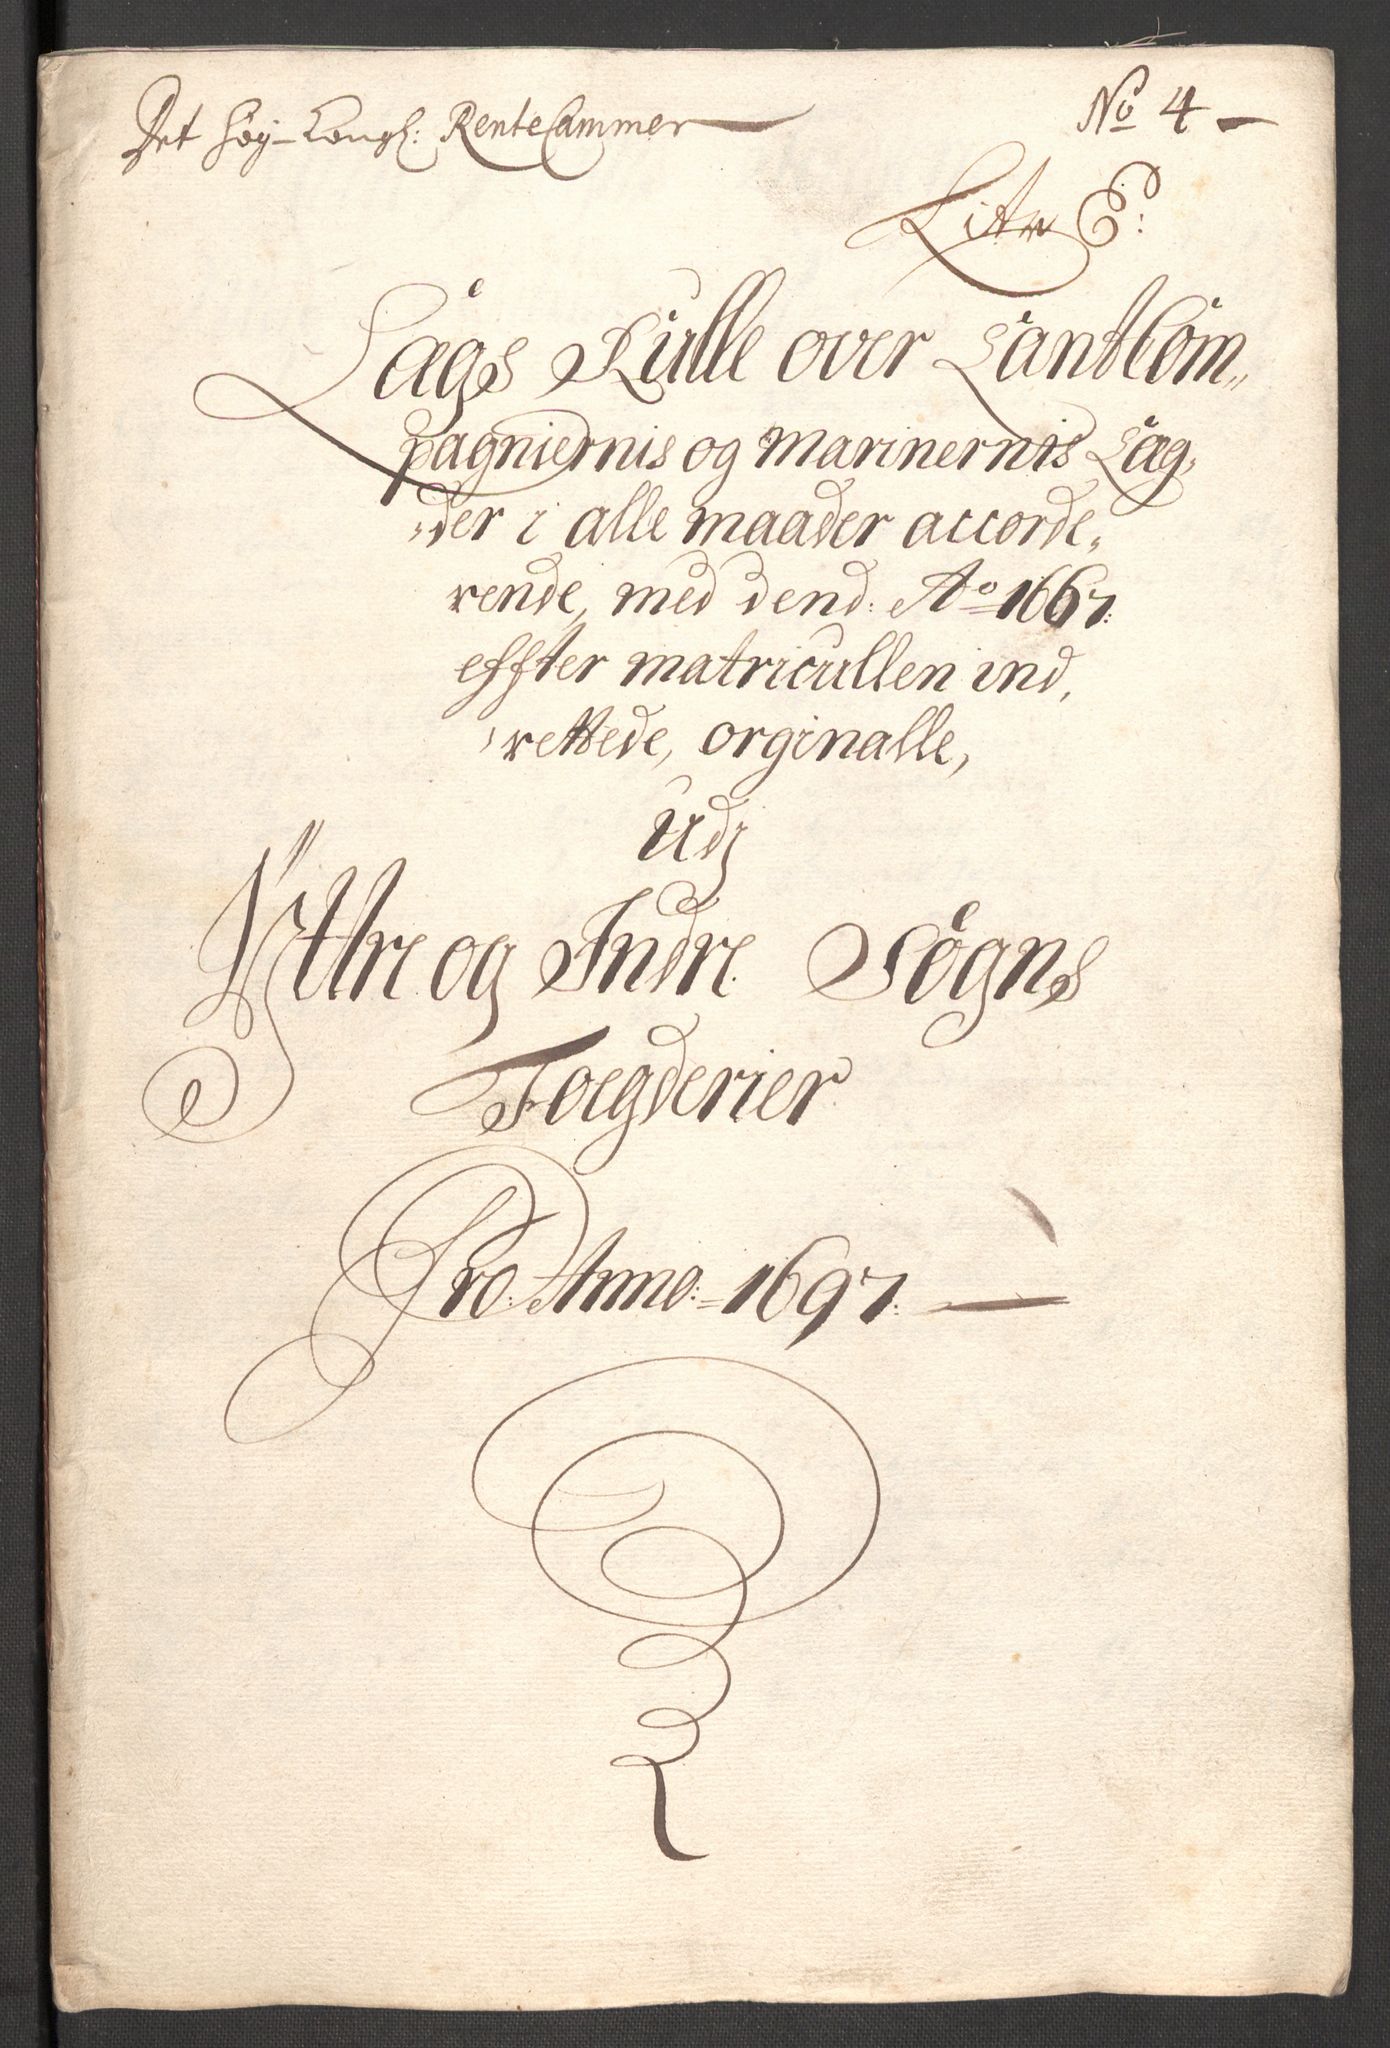 Det höy-Kongl: RenteCammer
No 4
Litr E:
Lägs Rulle over LantCom„
pagniernis og Marinernis Läg„
„der i alle maader accorde„
rende, med dend: Ao 1667:
effter matricullen ind,
„rettede, orginalle,
Udj
Yttre og Indre Sögns
Foegderier
Pro: Anno: 1697: